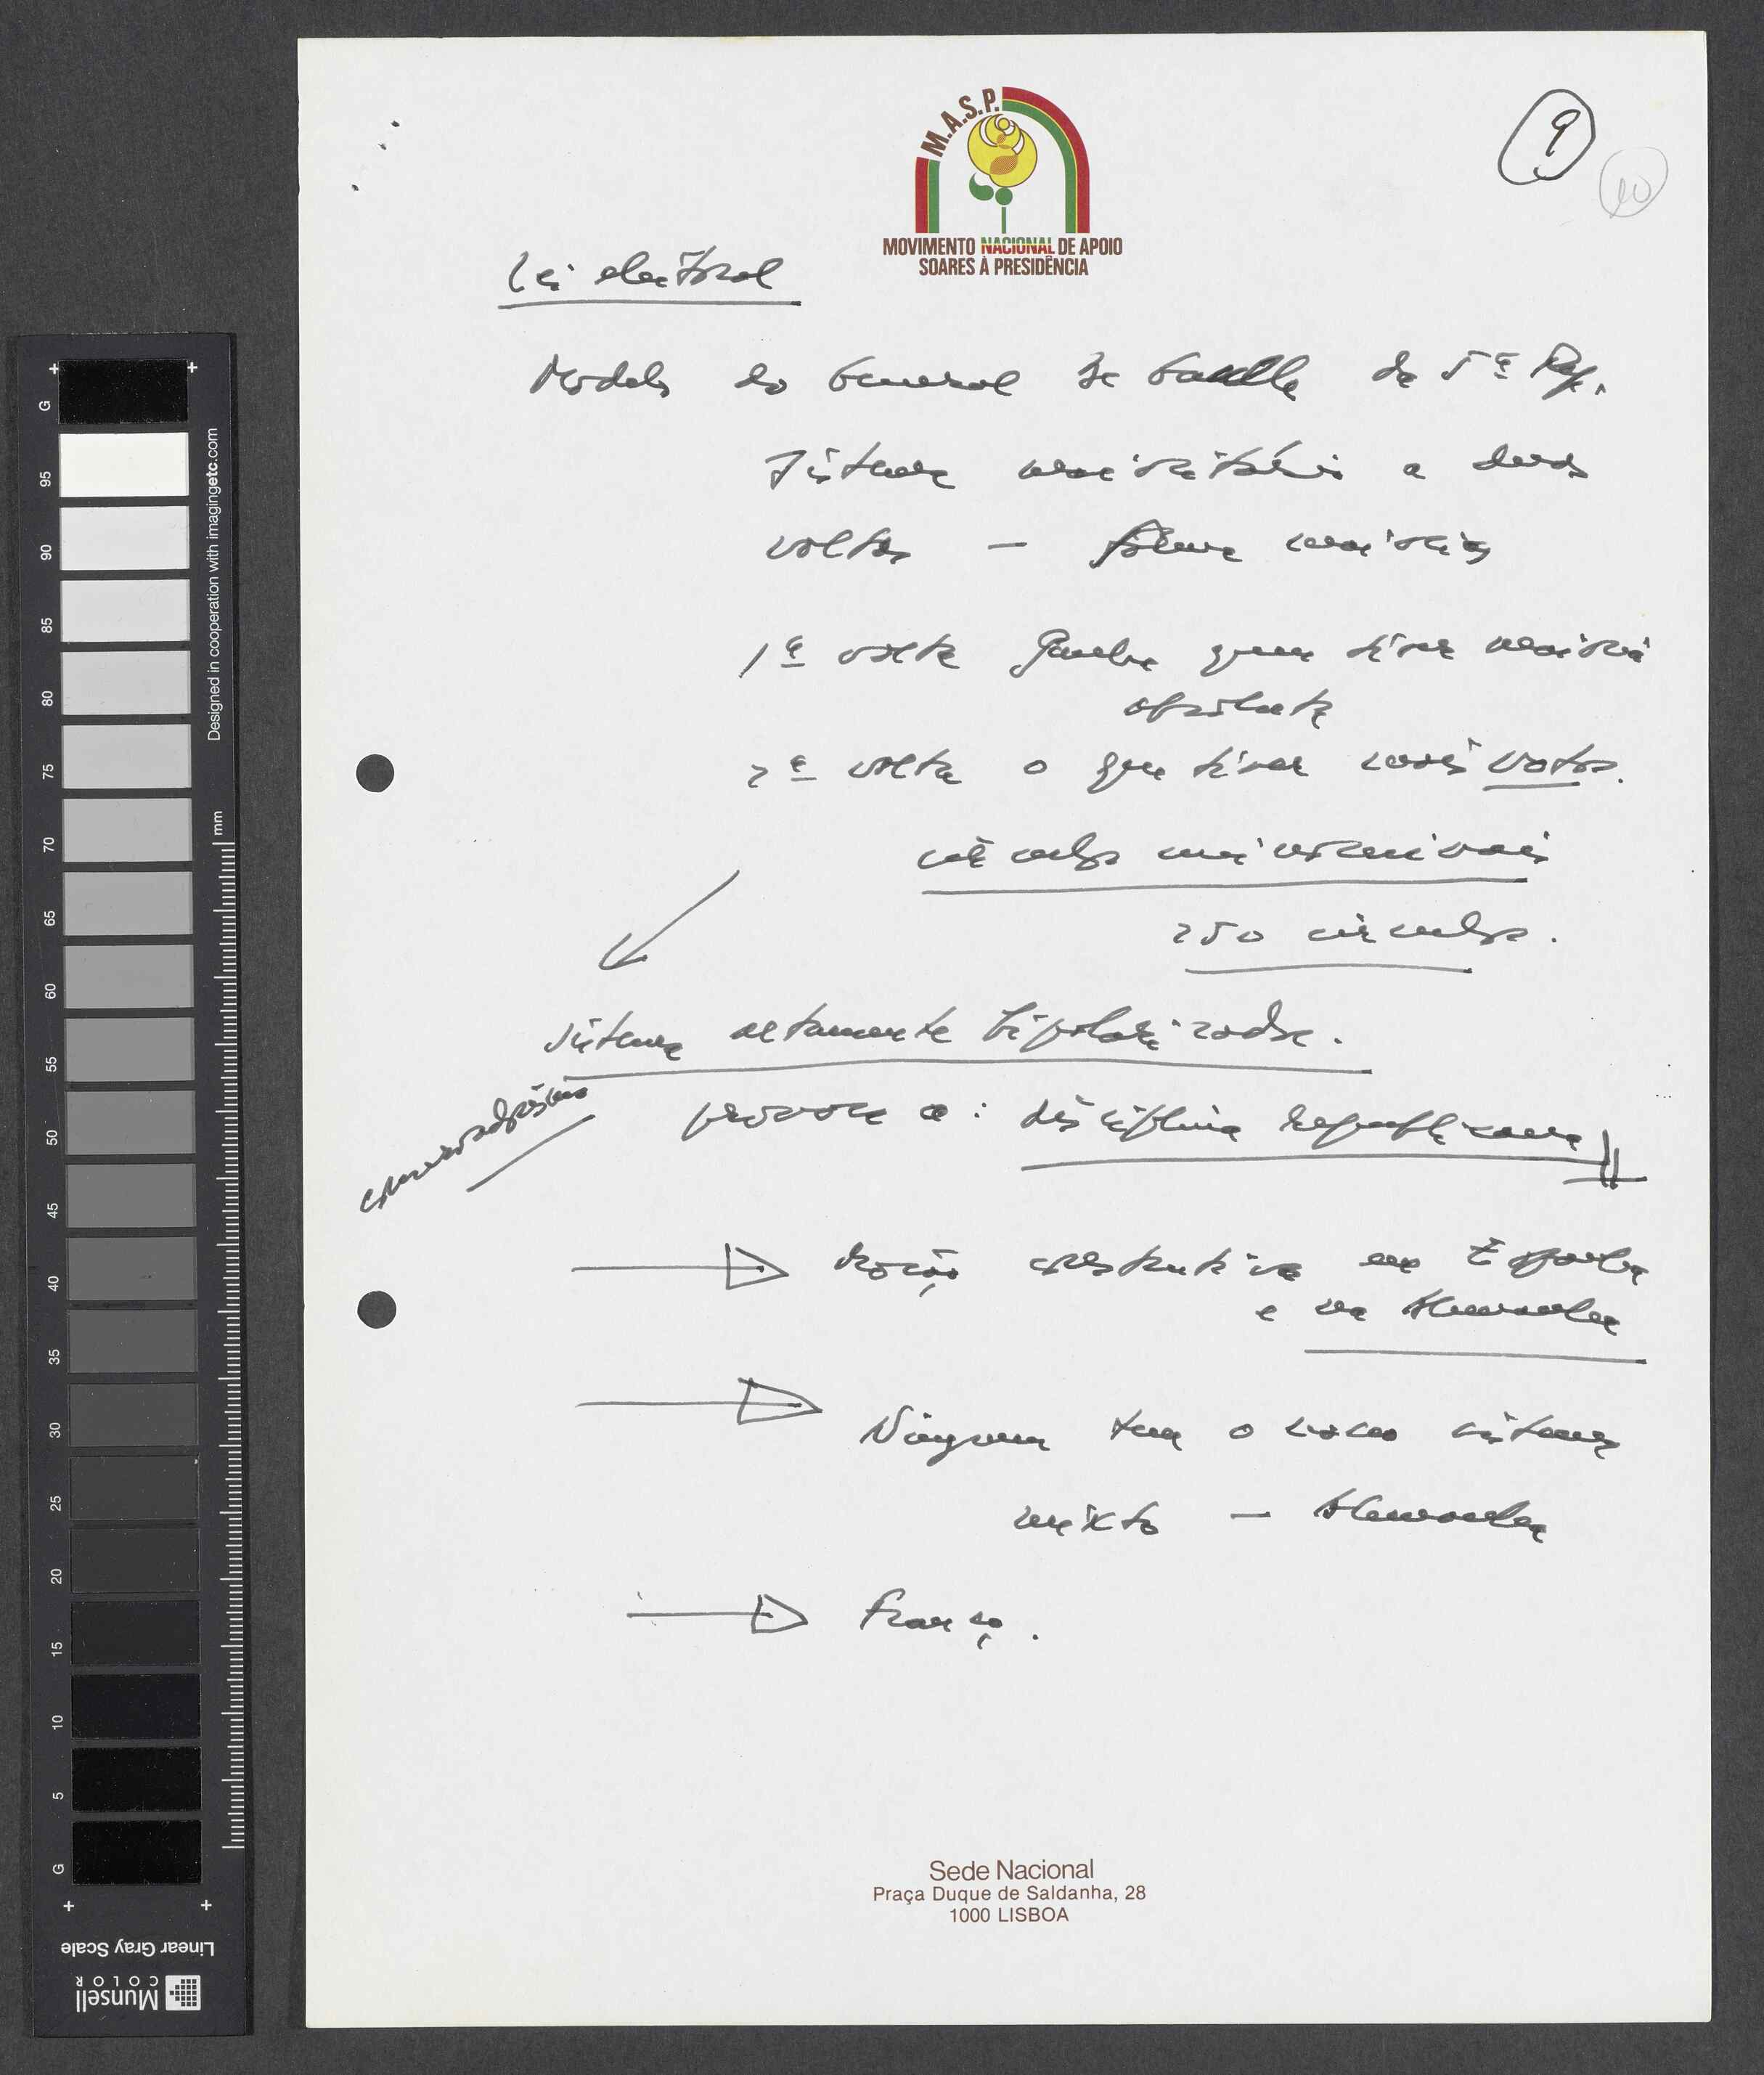 M.A.S.P.
MOVIMENTO NACIONAL DE APOIO
SOARES À PRESIDÊNCIA
9
10
Lei eleitoral
Modelo do General De Gaulle da 5ª Rep.
Sistema maioritário a duas
voltas — forma maiorias
1ª volta Ganha quem tiver maioria
absoluta
2ª volta o que tiver mais votos.
círculos uninominais
250 círculos.
Sistema altamente bipolarizador.
provoca a: disciplina republicana
Moção construtiva em Espanha
e na Alemanha
Ninguem tem o nosso sistema
mixto — Alemanha
França.
Sede Nacional
Praça Duque de Saldanha, 28
1000 LISBOA
Designed in cooperation with imagingetc.com
mm
G
95
90
85
80
75
70
65
60
55
50
45
40
35
30
25
20
15
10
5
G
Linear Gray Scale
Munsell
COLOR